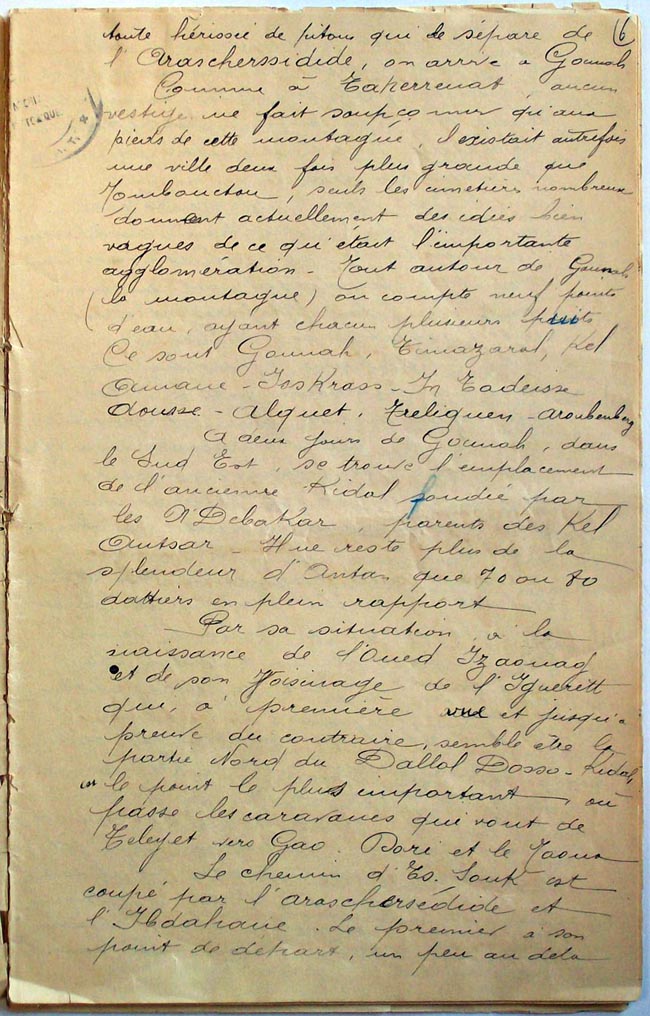 6
toute hérissée de pitons qui le sépare de
l'Arascherssidide, on arrive à Gounah
Comme à Takerrenat, aucun
vestige ne fait soupçonner qu'aux
pieds de cette montagne, il existait autrefois
une ville deux fois plus grande que
Tombouctou, seuls les cimetières nombreux
donnent actuellement des idées bien
vagues de ce qu'était l'importante
agglomération - Tout autour de Gounah
(la montagne) on compte neuf points
d'eau, ayant chacun plusieurs puits
Ce sont Gounah, Timazaral, Kel
Amane - Jos Krass - In Tadeisse
dousse - Alguet, Treliguen - Aroubenberg
A deux jours de Gounah, dans
le Sud Est, se trouve l'emplacement
de l'ancienne Kidal fondée par
les N Debakar, parents des Kel
Antsar - Il ne reste plus de la
splendeur d'Antan que 70 ou 80
dattiers en plein rapport
Par sa situation, à la
naissance de l'Oued Izaouag
et de son Voisinage de l'Igueritt
qui, à première vue et jusqu'à
preuve du contraire, semble être la
partie Nord du Dallol Dosso - Kidal,
est le point le plus important, où
passe les caravanes qui vont de
Teleyet vers Gao, Dori et le Taoua
Le chemin d'Es. Souk est
coupé par l'araschersédide et
l'Ibdahane. Le premier à son
point de départ, un peu au delà